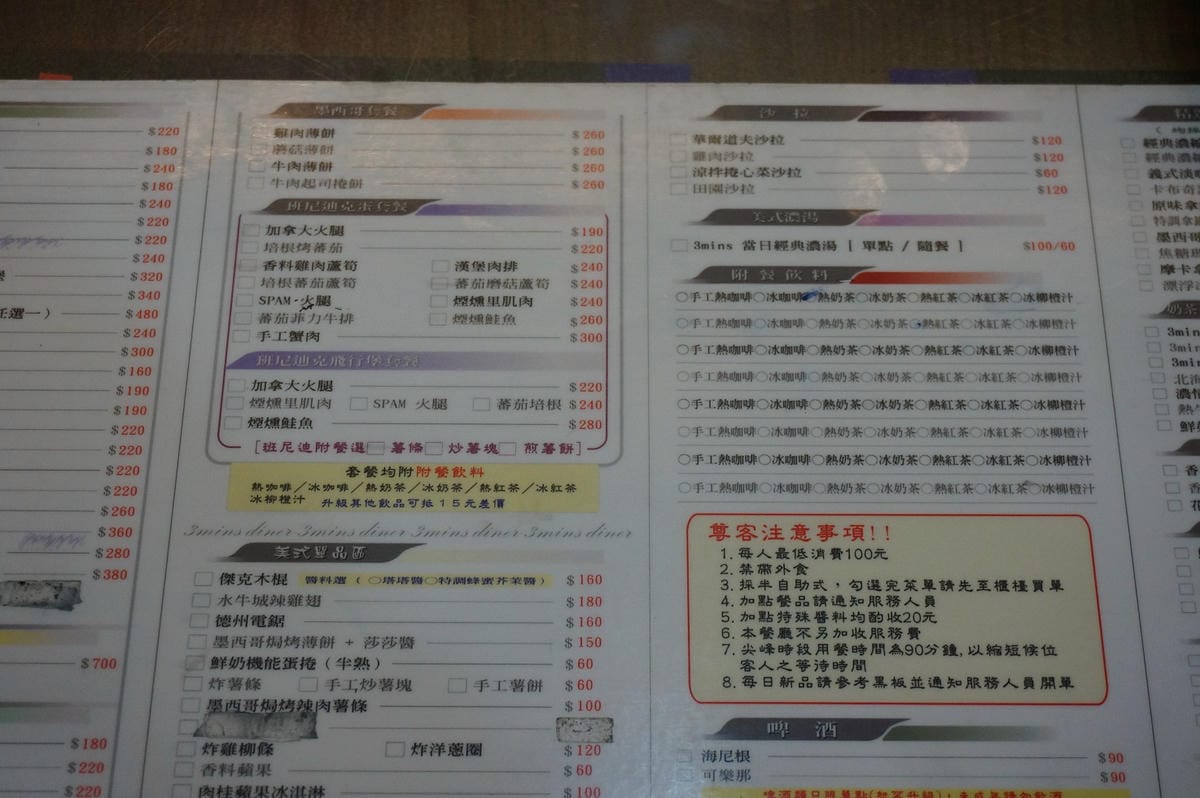 $220
$180
$240
$180
$240
$220
$220
$240
$320
$340
任選一） $480
$240
$300
$160
$190
$190
$220
$220
$220
$220
$260
$360
$280
$380
$700
$180
$220
$220
墨西哥套餐
雞肉薄餅 $260
蘑菇薄餅 $260
牛肉薄餅 $260
牛肉起司捲餅 $260
班尼迪克蛋套餐
加拿大火腿 $190
培根烤蕃茄 $220
香料雞肉蘆筍 漢堡肉排 $240
培根蕃茄蘆筍 蕃茄磨菇蘆筍 $240
SPAM 火腿 煙燻里肌肉 $240
蕃茄菲力牛排 煙燻鮭魚 $260
手工蟹肉 $300
班尼迪克飛行堡套餐
加拿大火腿 $220
煙燻里肌肉 SPAM 火腿 蕃茄培根 $240
煙燻鮭魚 $280
[班尼迪附餐選 薯條 炒薯塊 煎薯餅]
套餐均附附餐飲料
熱咖啡／冰咖啡／熱奶茶／冰奶茶／熱紅茶／冰紅茶
冰柳橙汁 升級其他飲品可抵15元差價
3mins diner 3mins diner 3mins diner 3mins diner
美式單品區
傑克木棍 醬料選（○塔塔醬○特調蜂蜜芥茉醬） $160
水牛城辣雞翅 $180
德州電鋸 $160
墨西哥焗烤薄餅 + 莎莎醬 $150
鮮奶機能蛋捲（半熟） $60
炸薯條 手工炒薯塊 手工薯餅 $60
墨西哥焗烤辣肉薯條 $100
炸雞柳條 炸洋蔥圈 $120
香料蘋果 $60
肉桂蘋果冰淇淋 $100
沙拉
華爾道夫沙拉 $120
雞肉沙拉 $120
涼拌捲心菜沙拉 $60
田園沙拉 $120
美式濃湯
3mins 當日經典濃湯 [ 單點 / 隨餐 ] $100/60
附餐飲料
○手工熱咖啡○冰咖啡 熱奶茶○冰奶茶○熱紅茶○冰紅茶○冰柳橙汁
○手工熱咖啡○冰咖啡○熱奶茶○冰奶茶 熱紅茶○冰紅茶○冰柳橙汁
○手工熱咖啡○冰咖啡○熱奶茶○冰奶茶○熱紅茶○冰紅茶○冰柳橙汁
○手工熱咖啡○冰咖啡○熱奶茶○冰奶茶○熱紅茶○冰紅茶○冰柳橙汁
○手工熱咖啡○冰咖啡○熱奶茶○冰奶茶○熱紅茶○冰紅茶○冰柳橙汁
○手工熱咖啡○冰咖啡○熱奶茶○冰奶茶○熱紅茶○冰紅茶○冰柳橙汁
○手工熱咖啡○冰咖啡○熱奶茶○冰奶茶○熱紅茶○冰紅茶○冰柳橙汁
○手工熱咖啡○冰咖啡○熱奶茶○冰奶茶○熱紅茶○冰紅茶○冰柳橙汁
尊客注意事項!!
1. 每人最低消費100元
2. 禁帶外食
3. 採半自助式，勾選完菜單請先至櫃檯買單
4. 加點餐品請通知服務人員
5. 加點特殊醬料均酌收20元
6. 本餐廳不另加收服務費
7. 尖峰時段用餐時間為90分鐘,以縮短候位
客人之等待時間
8. 每日新品請參考黑板並通知服務人員開單
啤酒
海尼根 $90
可樂那 $90
精
經典濃縮
經典濃
義式淡
卡布奇
原味拿
特調拿
墨西哥
焦糖瑪
摩卡拿
漂浮冰
奶茶
3min
3min
3min
北海
濃情
熱
鮮
香
香
花